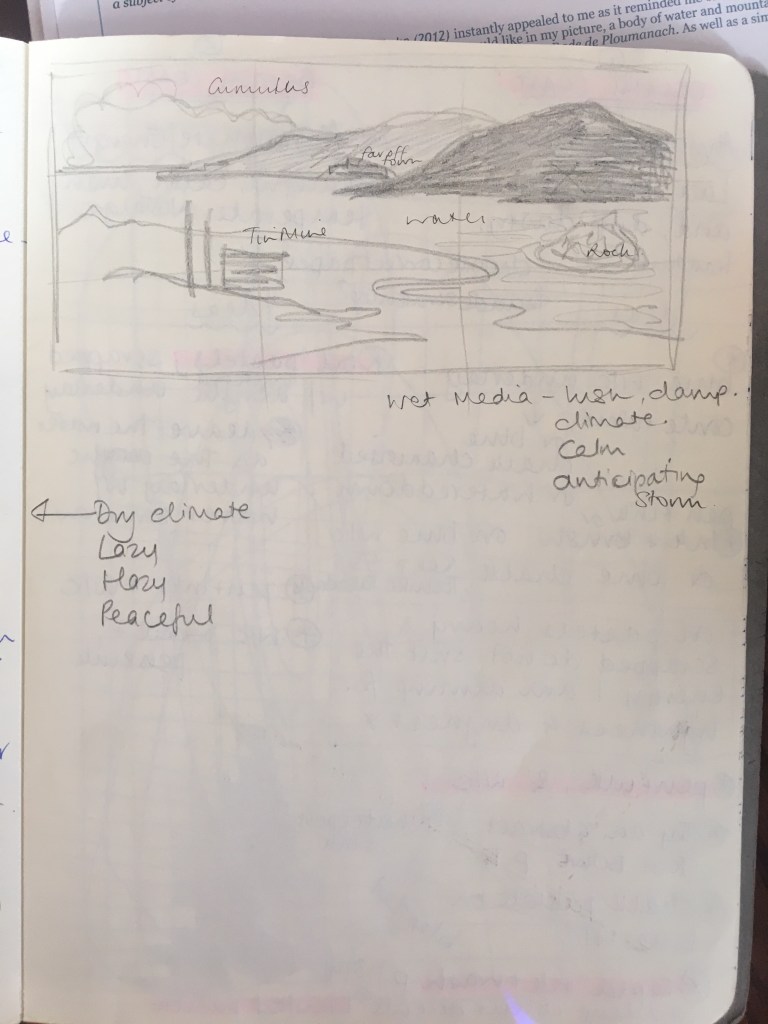 a subject
(2012) instantly appealed to me as it reminded me
ld like in my picture, a body of water and mounta
de de Ploumanach. As well as a sim
Cumulus
far off
town
water
Tin Mine
Rock
Wet Media - lush, damp.
climate.
Calm
anticipating
Storm
Dry climate
Lazy
Hazy
Peaceful